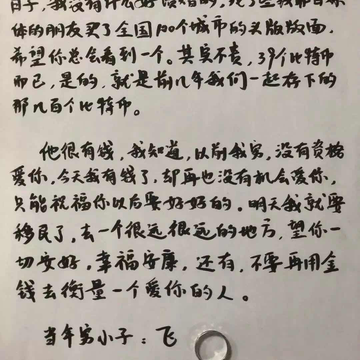 日子，我没有什么好
体的朋友买了全国100个城市的头版版面，
希望你总会看到一个。其实不贵，39个比特币
而已，是的，就是前几年我们一起存下的
那几百个比特币。
他很有钱，我知道，以前我穷，没有资格
爱你，今天我有钱了，却再也没有机会爱你，
只能祝福你以后要好好的。明天我就要
移民了，去一个很远很远的地方，望你一
切安好，幸福安康，还有，不要再用金
钱去衡量一个爱你的人。
当年穷小子：飞